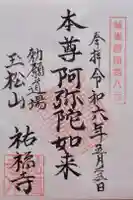 奉拝 令和六年五月三日
本尊 阿弥陀如来
勅願道場
玉松山
祐福寺